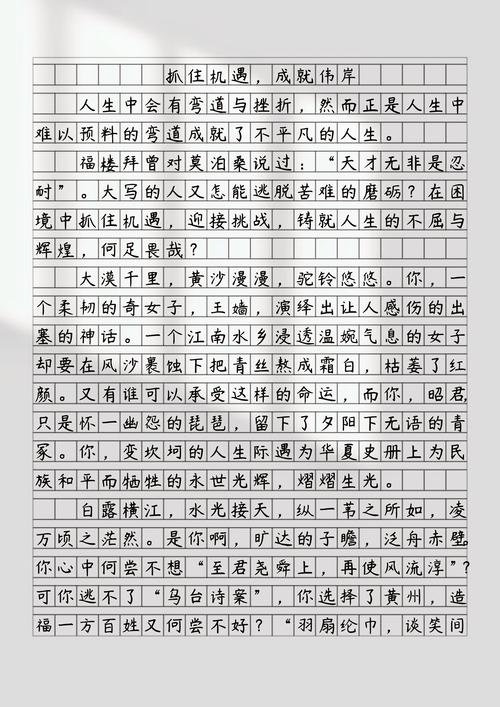 抓住机遇，成就伟岸
人生中会有弯道与挫折，然而正是人生中
难以预料的弯道成就了不平凡的人生。
福楼拜曾对莫泊桑说过：“天才无非是忍
耐”。大写的人又怎能逃脱苦难的磨砺？在困
境中抓住机遇，迎接挑战，铸就人生的不屈与
辉煌，何足畏哉？
大漠千里，黄沙漫漫，驼铃悠悠。你，一
个柔韧的奇女子，王嫱，演绎出让人感伤的出
塞的神话。一个江南水乡浸透温婉气息的女子
却要在风沙裹蚀下把青丝熬成霜白，枯萎了红
颜。又有谁可以承受这样的命运，而你，昭君，
只是怀一幽怨的琵琶，留下了夕阳下无语的青
冢。你，变坎坷的人生际遇为华夏史册上为民
族和平而牺牲的永世光辉，熠熠生光。
白露横江，水光接天，纵一苇之所如，凌
万顷之茫然。是你啊，旷达的子瞻，泛舟赤壁。
你心中何尝不想“至君尧舜上，再使风流淳”？
可你逃不了“乌台诗案”，你选择了黄州，造
福一方百姓又何尝不好？“羽扇纶巾，谈笑间